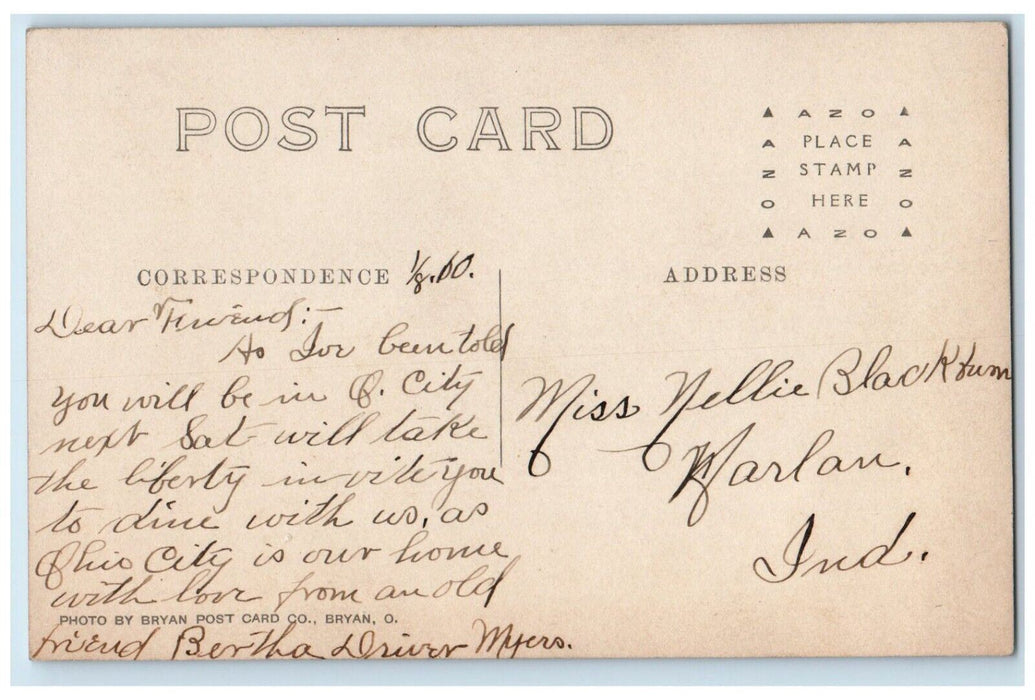 POST CARD
▲ A Z O ▲
A PLACE A
Z STAMP Z
O HERE O
▲ A Z O ▲
CORRESPONDENCE
ADDRESS
Dear Friend:-
As Ive been told
you will be in O. City
next Sat will take
the liberty invite you
to dine with us, as
Ohio City is our home
with love from an old
PHOTO BY BRYAN POST CARD CO., BRYAN, O.
friend Bertha Driver Myers.
Miss Nellie
Harlan,
Ind.